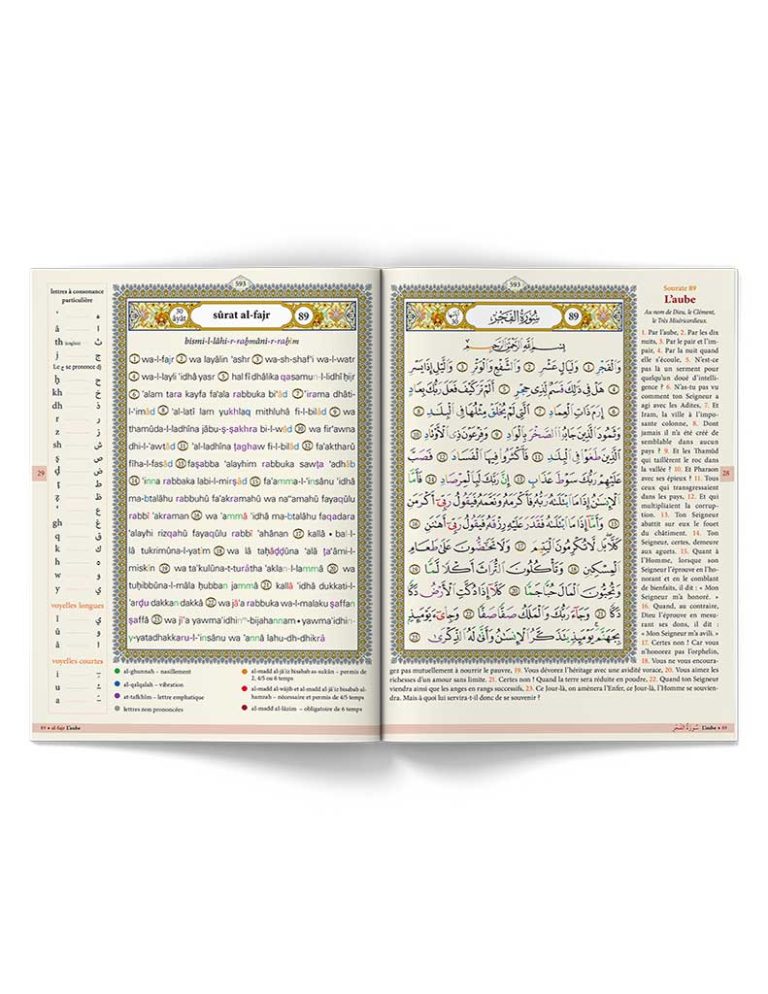 lettres à consonance
particulière
' ء
â ا
th (anglais) ث
j ج
Le ج se prononce dj
ḥ ح
kh خ
dh ذ
r ر
z ز
sh ش
ṣ ص
ḍ ض
ṭ ط
ẓ ظ
gh غ
q ق
k ك
h ه
w و
y ي
voyelles longues
î ي
û و
â ا
voyelles courtes
i
u
a
29
593
30
âyât
sûrat al-fajr
89
bismi-l-lâhi-r-raḥmâni-r-raḥîm
1 wa-l-fajr 2 wa layâlin 'ashr 3 wa-sh-shaf'i wa-l-watr
4 wa-l-layli 'idhâ yasr 5 hal fî dhâlika qasamu-n-l-lidhî ḥijr
6 'alam tara kayfa fa'ala rabbuka bi'âd 7 'irama dhâti-
l-'imâd 8 'al-latî lam yukhlaq mithluhâ fi-l-bilâd 9 wa
thamûda-l-ladhîna jâbu-ṣ-ṣakhra bi-l-wâd 10 wa fir'awna
dhi-l-'awtâd 11 'al-ladhîna ṭaghaw fi-l-bilâd 12 fa'aktharû
fîha-l-fasâd 13 faṣabba 'alayhim rabbuka sawṭa 'adhâb
14 'inna rabbaka labi-l-mirṣâd 15 fa'amma-l-'insânu 'idhâ
ma-btalâhu rabbuhû fa'akramahû wa na''amahû fayaqûlu
rabbî 'akraman 16 wa 'ammâ 'idhâ ma-btalâhu faqadara
'alayhi rizqahû fayaqûlu rabbî 'ahânan 17 kallâ • bal-l-
lâ tukrimûna-l-yatîm 18 wa lâ taḥâḍḍûna 'alâ ṭa'âmi-l-
miskîn 19 wa ta'kulûna-t-turâtha 'aklan-l-lammâ 20 wa
tuḥibbûna-l-mâla ḥubban jammâ 21 kallâ 'idhâ dukkati-l-
'arḍu dakkan dakkâ 22 wa jâ'a rabbuka wa-l-malaku ṣaffan
ṣaffâ 23 wa jî'a yawma'idhin bijahannam • yawma'idhin-
y-yatadhakkaru-l-'insânu wa 'annâ lahu-dh-dhikrâ
al-ghunnah – nasillement
al-qalqalah – vibration
at-tafkhîm – lettre emphatique
lettres non prononcées
al-madd al-jâ'iz bisabab as-sukûn – permis de
2, 4/5 ou 6 temps
al-madd al-wâjib et al-madd al-jâ'iz bisabab al-
hamzah – nécessaire et permis de 4/5 temps
al-madd al-lâzim – obligatoire de 6 temps
89 • al-fajr L'aube
593
سُورَةُ الفَجْرِ
89
آياتها
30
بِسْمِ اللَّهِ الرَّحْمَٰنِ الرَّحِيمِ
وَالْفَجْرِ ١ وَلَيَالٍ عَشْرٍ ٢ وَالشَّفْعِ وَالْوَتْرِ ٣ وَاللَّيْلِ إِذَا يَسْرِ
٤ هَلْ فِي ذَٰلِكَ قَسَمٌ لِّذِي حِجْرٍ ٥ أَلَمْ تَرَ كَيْفَ فَعَلَ رَبُّكَ بِعَادٍ
٦ إِرَمَ ذَاتِ الْعِمَادِ ٧ الَّتِي لَمْ يُخْلَقْ مِثْلُهَا فِي الْبِلَادِ ٨
وَثَمُودَ الَّذِينَ جَابُوا الصَّخْرَ بِالْوَادِ ٩ وَفِرْعَوْنَ ذِي الْأَوْتَادِ ١٠
الَّذِينَ طَغَوْا فِي الْبِلَادِ ١١ فَأَكْثَرُوا فِيهَا الْفَسَادَ ١٢ فَصَبَّ
عَلَيْهِمْ رَبُّكَ سَوْطَ عَذَابٍ ١٣ إِنَّ رَبَّكَ لَبِالْمِرْصَادِ ١٤ فَأَمَّا
الْإِنسَانُ إِذَا مَا ابْتَلَاهُ رَبُّهُ فَأَكْرَمَهُ وَنَعَّمَهُ فَيَقُولُ رَبِّي أَكْرَمَنِ
١٥ وَأَمَّا إِذَا مَا ابْتَلَاهُ فَقَدَرَ عَلَيْهِ رِزْقَهُ فَيَقُولُ رَبِّي أَهَانَنِ ١٦
كَلَّا بَل لَّا تُكْرِمُونَ الْيَتِيمَ ١٧ وَلَا تَحَاضُّونَ عَلَىٰ طَعَامِ
الْمِسْكِينِ ١٨ وَتَأْكُلُونَ التُّرَاثَ أَكْلًا لَّمًّا ١٩
وَتُحِبُّونَ الْمَالَ حُبًّا جَمًّا ٢٠ كَلَّا إِذَا دُكَّتِ الْأَرْضُ دَكًّا
دَكًّا ٢١ وَجَاءَ رَبُّكَ وَالْمَلَكُ صَفًّا صَفًّا ٢٢ وَجِيءَ يَوْمَئِذٍ
بِجَهَنَّمَ يَوْمَئِذٍ يَتَذَكَّرُ الْإِنسَانُ وَأَنَّىٰ لَهُ الذِّكْرَىٰ ٢٣
Sourate 89
L'aube
Au nom de Dieu, le Clément,
le Très Miséricordieux.
1. Par l'aube, 2. Par les dix
nuits, 3. Par le pair et l'im-
pair, 4. Par la nuit quand
elle s'écoule, 5. N'est-ce
pas là un serment pour
quelqu'un doué d'intelli-
gence ? 6. N'as-tu pas vu
comment ton Seigneur a
agi avec les Adites, 7. Et
Iram, la ville à l'impo-
sante colonne, 8. Dont
jamais il n'a été créé de
semblable dans aucun
pays ? 9. Et les Thamûd
qui taillèrent le roc dans
la vallée ? 10. Et Pharaon
avec ses épieux ? 11. Tous
ceux qui transgressaient
dans les pays, 12. Et qui
multipliaient la corrup-
tion. 13. Ton Seigneur
abattit sur eux le fouet
du châtiment. 14. Ton
Seigneur, certes, demeure
aux aguets. 15. Quant à
l'Homme, lorsque son
Seigneur l'éprouve en l'ho-
norant et en le comblant
de bienfaits, il dit : « Mon
Seigneur m'a honoré. »
16. Quand, au contraire,
Dieu l'éprouve en mesu-
rant ses dons, il dit :
« Mon Seigneur m'a avili. »
17. Certes non ! Car vous
n'honorez pas l'orphelin,
18. Vous ne vous encoura-
gez pas mutuellement à nourrir le pauvre, 19. Vous dévorez l'héritage avec une avidité vorace, 20. Vous aimez les
richesses d'un amour sans limite. 21. Certes non ! Quand la terre sera réduite en poudre, 22. Quand ton Seigneur
viendra ainsi que les anges en rangs successifs, 23. Ce Jour-là, on amènera l'Enfer, ce Jour-là, l'Homme se souvien-
dra. Mais à quoi lui servira-t-il donc de se souvenir ?
28
سُورَةُ الفَجْرِ L'aube • 89